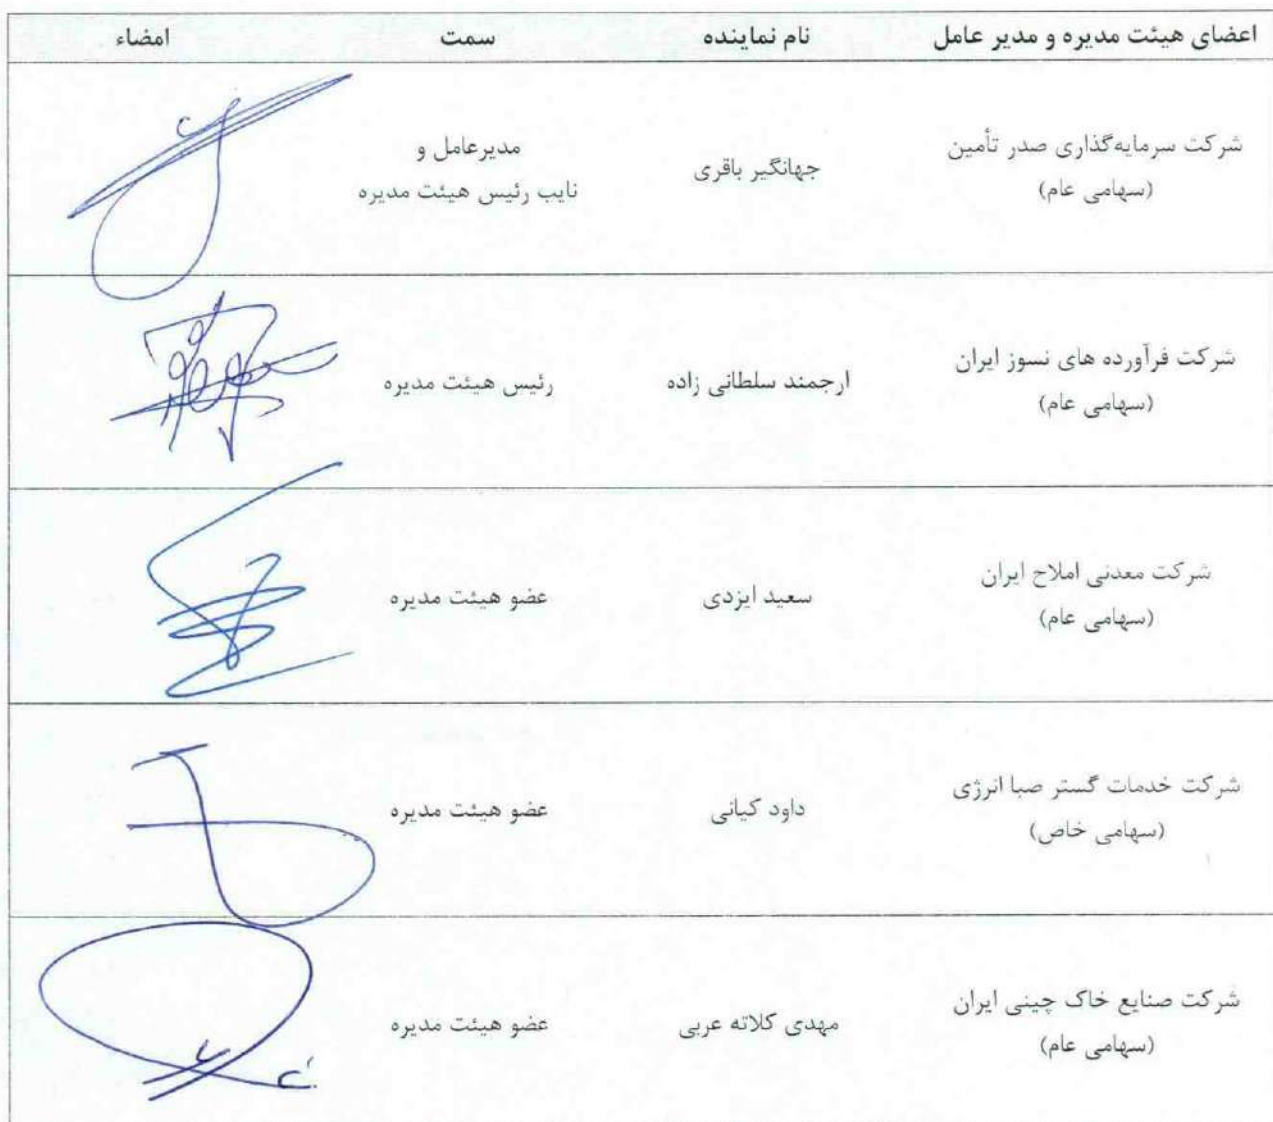 اعضای هیئت مدیره و مدیر عامل نام نماینده سمت امضاء
شرکت سرمایه‌گذاری صدر تأمین
(سهامی عام)
جهانگیر باقری
مدیرعامل و
نایب رئیس هیئت مدیره
شرکت فرآورده های نسوز ایران
(سهامی عام)
ارجمند سلطانی زاده
رئیس هیئت مدیره
شرکت معدنی املاح ایران
(سهامی عام)
سعید ایزدی
عضو هیئت مدیره
شرکت خدمات گستر صبا انرژی
(سهامی خاص)
داود کیانی
عضو هیئت مدیره
شرکت صنایع خاک چینی ایران
(سهامی عام)
مهدی کلاته عربی
عضو هیئت مدیره